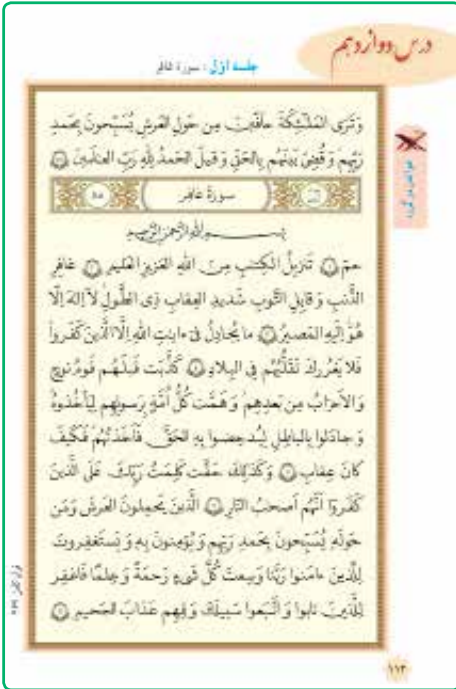 درس دوازدهم
جلسه اوّل : سورهٔ غافر
وَ تَرَى المَلٰئِكَةَ حافّينَ مِن حَولِ العَرشِ يُسَبِّحونَ بِحَمدِ
رَبِّهِم وَ قُضِىَ بَينَهُم بِالحَقِّ وَ قيلَ الحَمدُ لِلّٰهِ رَبِّ العٰلَمينَ
سورهٔ غافر
بِسمِ اللهِ الرَّحمٰنِ الرَّحيمِ
حمٓ ١ تَنزيلُ الكِتٰبِ مِنَ اللهِ العَزيزِ العَليمِ ٢ غافِرِ
الذَّنبِ وَ قابِلِ التَّوبِ شَديدِ العِقابِ ذِى الطَّولِ لآ اِلٰهَ اِلّا
هُوَ اِلَيهِ المَصيرُ ٣ ما يُجادِلُ فى ءايٰتِ اللهِ اِلَّا الَّذينَ كَفَروا
فَلا يَغرُركَ تَقَلُّبُهُم فِى البِلادِ ٤ كَذَّبَت قَبلَهُم قَومُ نوحٍ
وَ الاَحزابُ مِن بَعدِهِم وَ هَمَّت كُلُّ اُمَّةٍ بِرَسولِهِم لِيَأخُذوهُ
وَ جادَلوا بِالباطِلِ لِيُدحِضوا بِهِ الحَقَّ فَاَخَذتُهُم فَكَيفَ
كانَ عِقابِ ٥ وَ كَذٰلِكَ حَقَّت كَلِمَتُ رَبِّكَ عَلَى الَّذينَ
كَفَروٓا اَنَّهُم اَصحٰبُ النّارِ ٦ اَلَّذينَ يَحمِلونَ العَرشَ وَ مَن
حَولَهو يُسَبِّحونَ بِحَمدِ رَبِّهِم وَ يُؤمِنونَ بِهِ وَ يَستَغفِرونَ
لِلَّذينَ ءامَنوا رَبَّنا وَسِعتَ كُلَّ شَىءٍ رَحمَةً وَ عِلمًا فَاغفِر
لِلَّذينَ تابوا وَ اتَّبَعوا سَبيلَكَ وَ قِهِم عَذابَ الجَحيمِ ٧
١١٣